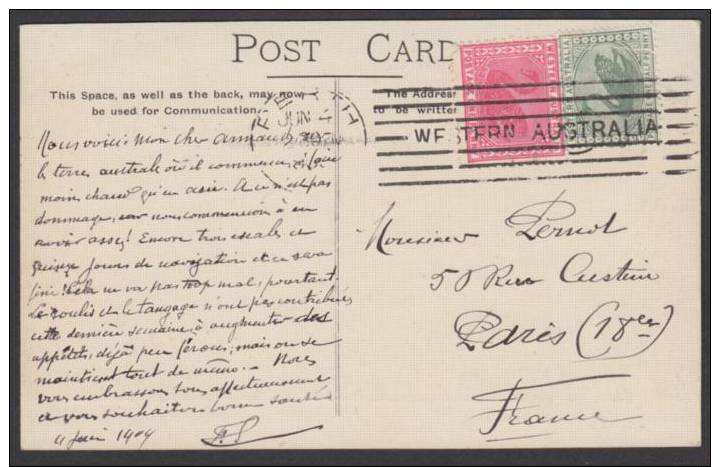 POST CARD
This Space, as well as the back, may now
be used for Communication.
The Address
to be written
PERTH
JUN 4
WESTERN AUSTRALIA
Nous voici mon cher Armand, aux
terres australes où il commence à faire
moins chaud qu'en Asie. Ce n'est pas
dommage, car nous commencions à en
avoir assez! Encore trois escales et
quinze jours de navigation et ce sera
fini! Cela ne va pas trop mal, pourtant.
Le roulis et le tangage n'ont pas contribué,
cette dernière semaine, à augmenter des
appétits, déjà peu féroces; mais on se
maintient tout de même. - Nous
vous embrassons tous affectueusement
et vous souhaitons bonne santé
4 Juin 1909
Monsieur Pernot
50 Rue Custine
Paris (18e)
France